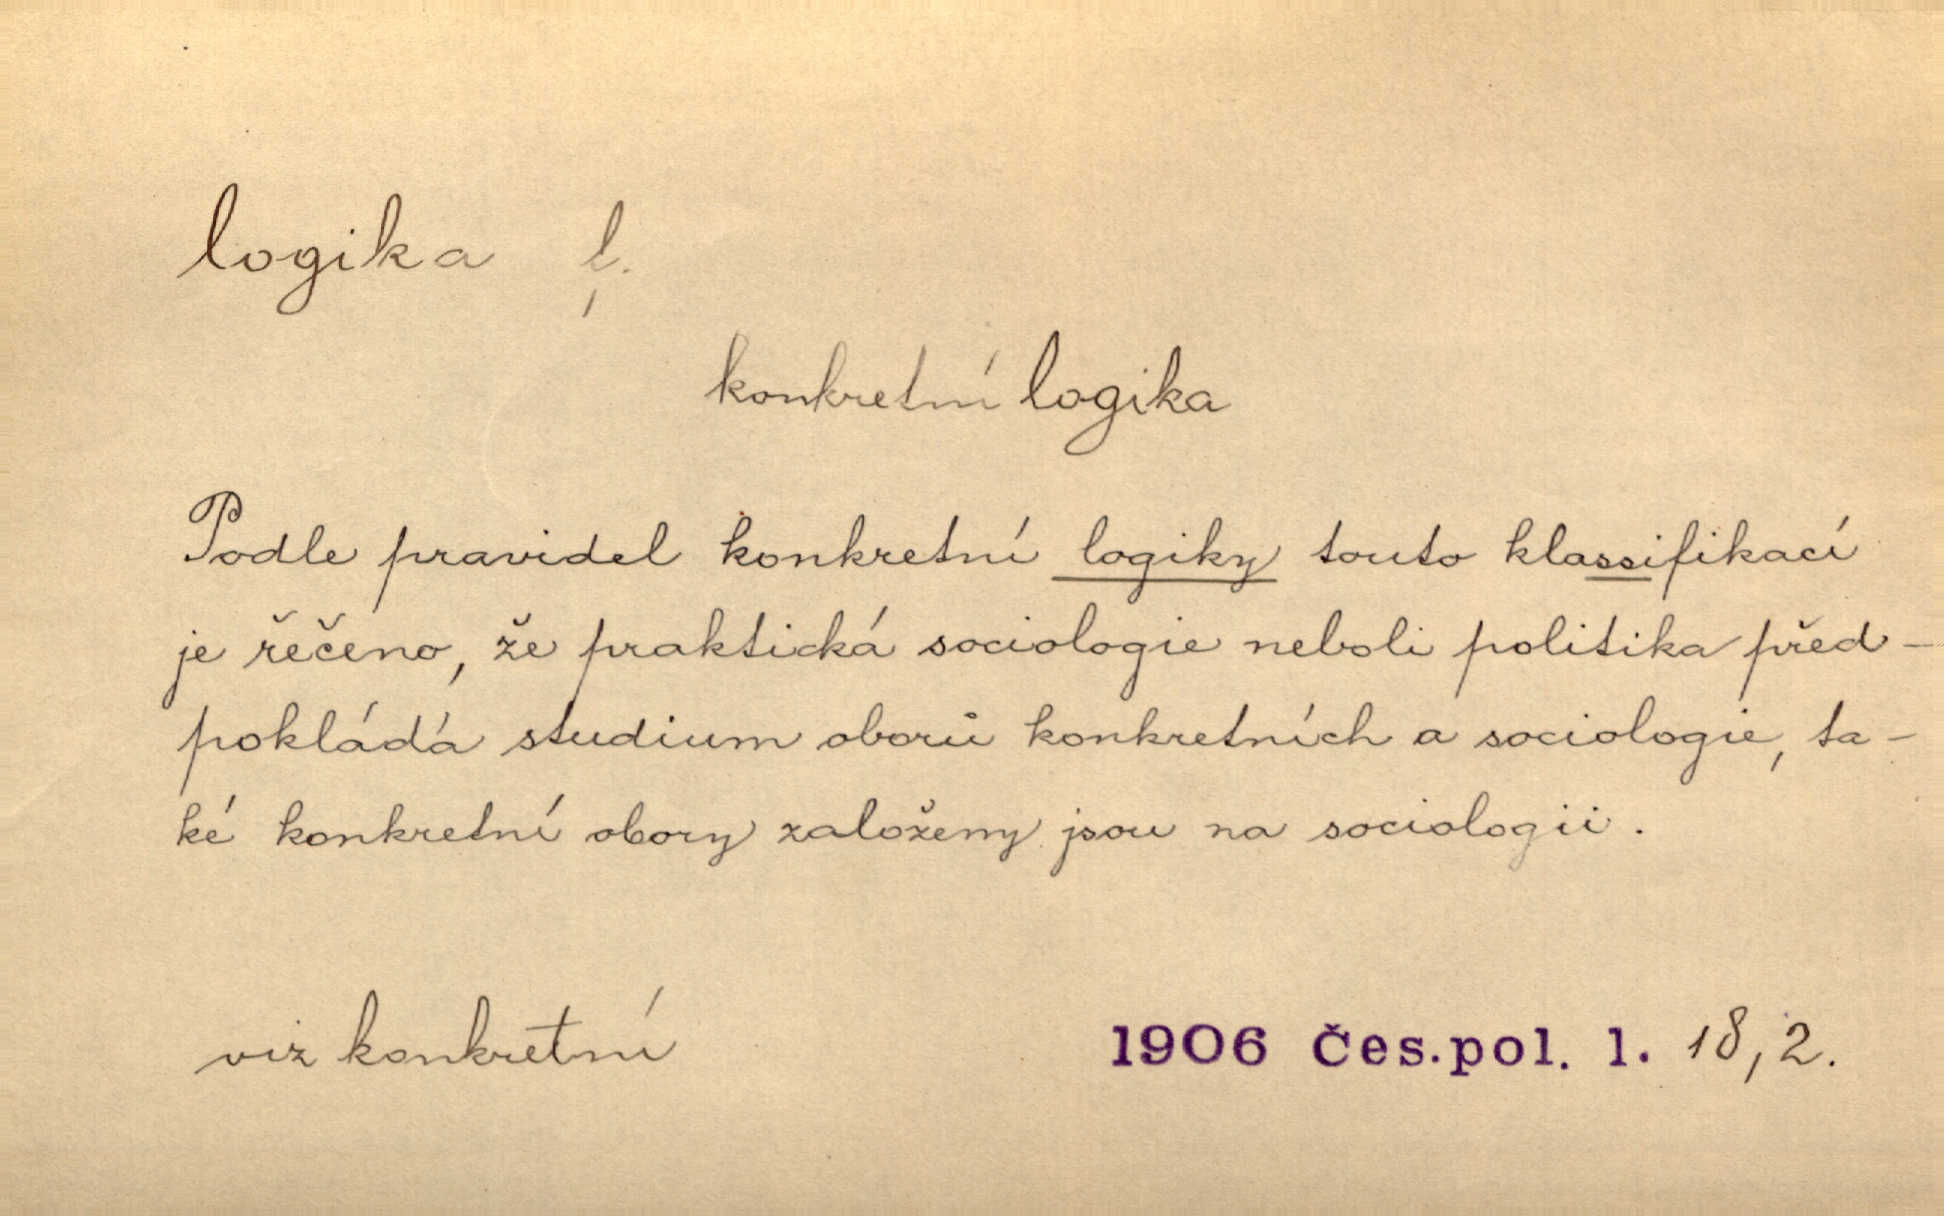 logika f.
konkretní logika
Podle pravidel konkretní logiky touto klassifikací
je řečeno, že praktická sociologie neboli politika před-
pokládá studium oborů konkretních a sociologie, ta-
ké konkretní obory založeny jsou na sociologii.
viz konkretní
1906 Čes.pol. 1. 18, 2.